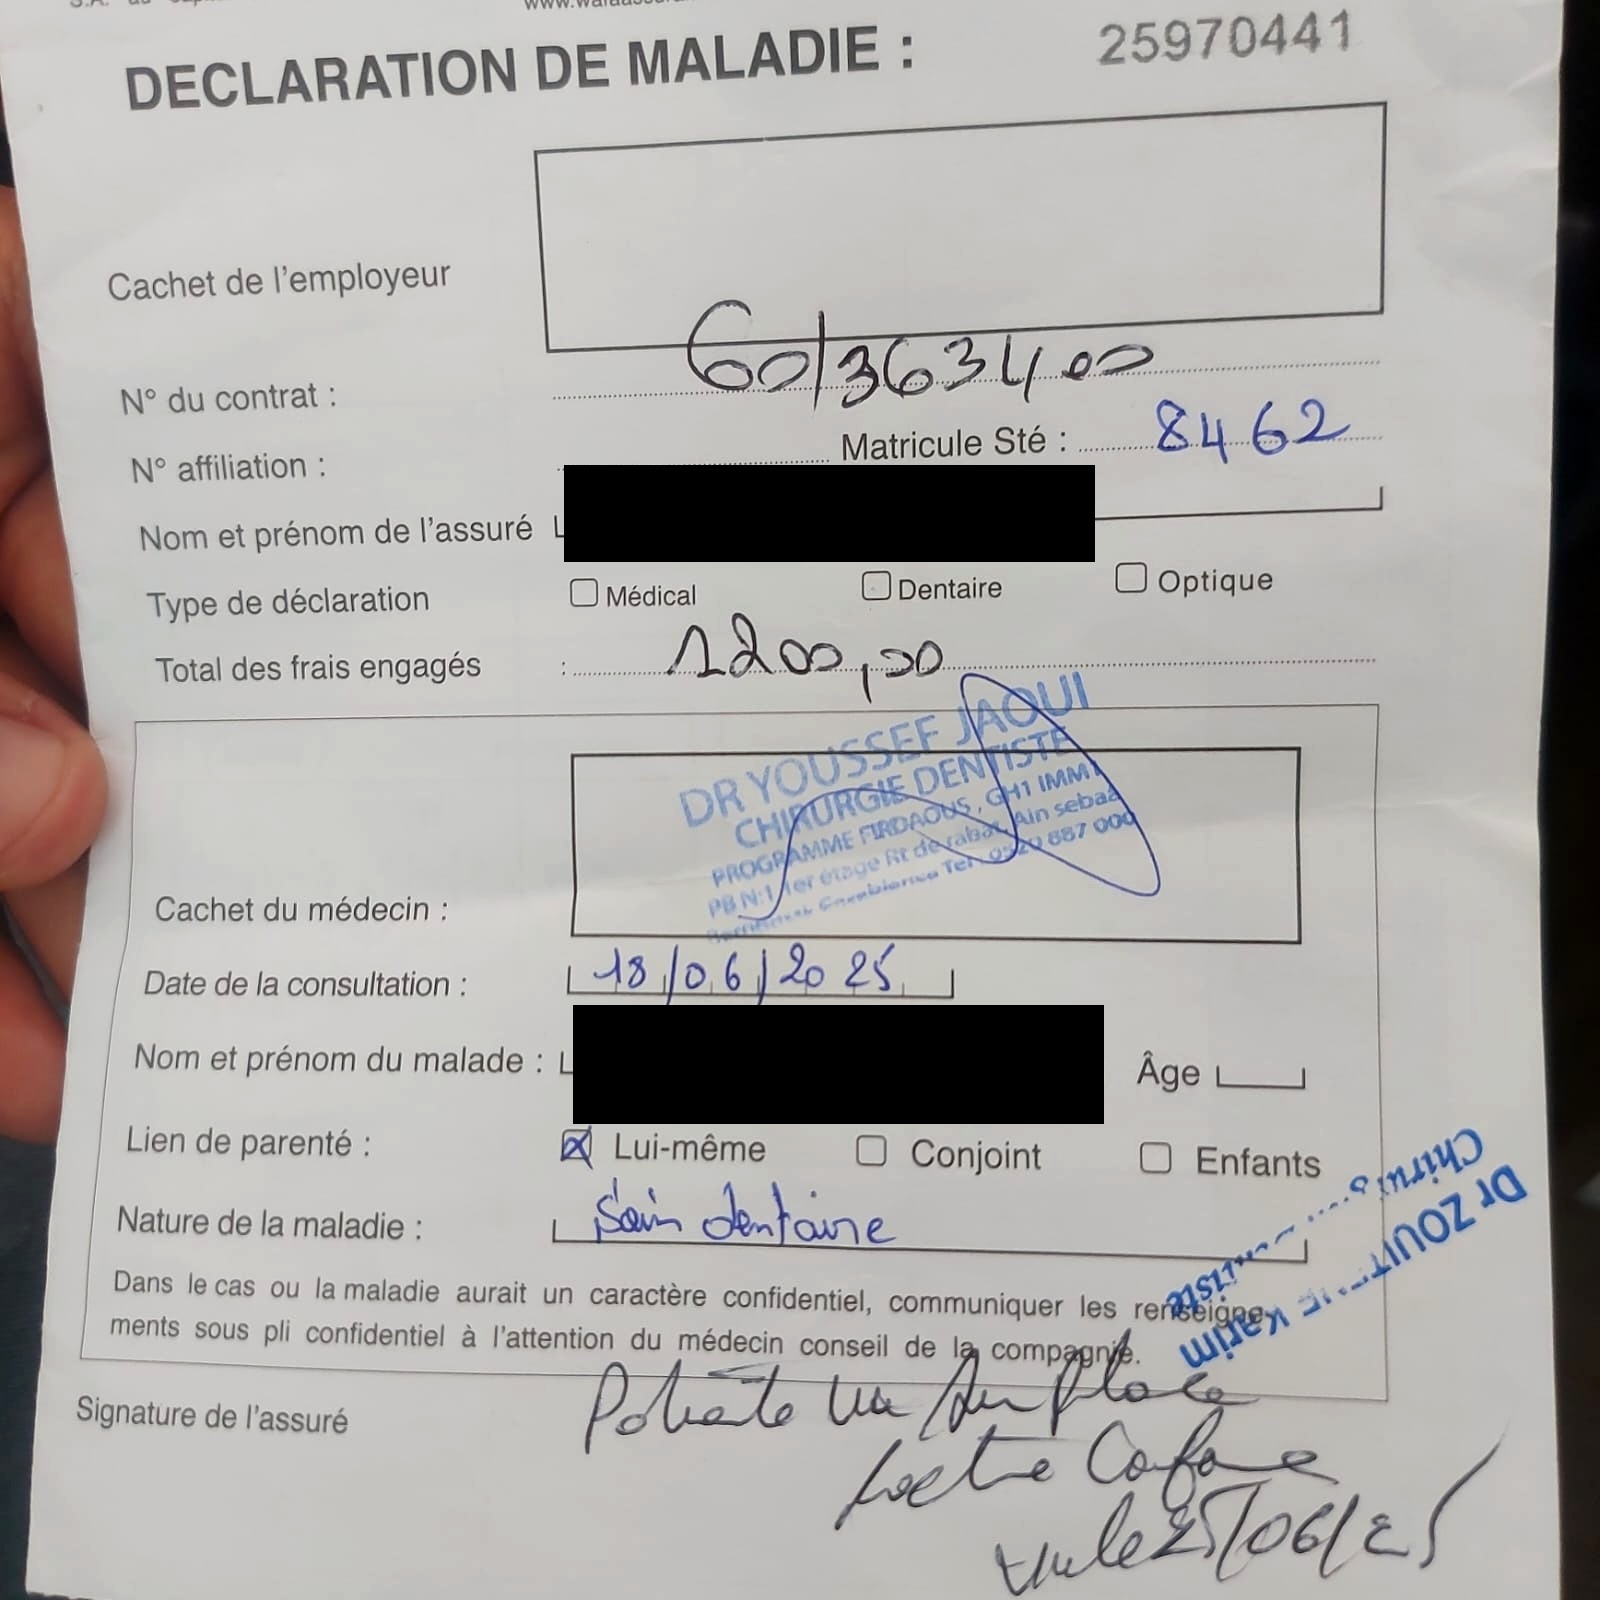 DECLARATION DE MALADIE : 25970441
Cachet de l'employeur
N° du contrat : 60/3634.00
N° affiliation : Matricule Sté : 8462
Nom et prénom de l'assuré
Type de déclaration Médical Dentaire Optique
Total des frais engagés : 1200,00
DR YOUSSEF JAOUI
CHIRURGIE DENTISTE
PROGRAMME FIRDAOUS, GH1 IMM1
PB N:1 1er étage Rt de rabat, Ain sebaa
Casablanca Tel: 0520 887 000
Cachet du médecin :
Date de la consultation : 18/06/2025
Nom et prénom du malade : Âge
Lien de parenté : Lui-même Conjoint Enfants
Nature de la maladie : Soin dentaire
Dr ZOUITINE Karim
Dans le cas ou la maladie aurait un caractère confidentiel, communiquer les renseigne-
ments sous pli confidentiel à l'attention du médecin conseil de la compagnie.
Signature de l'assuré
vu le 25/06/25